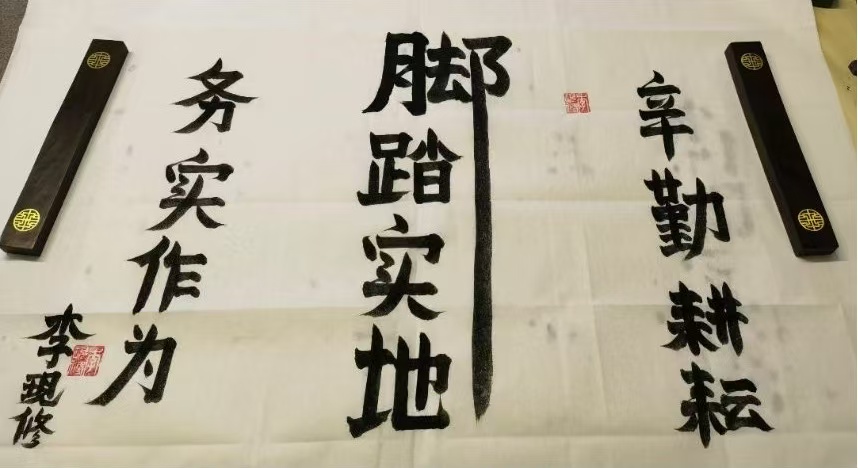 辛勤耕耘
脚踏实地
务实作为
李現修